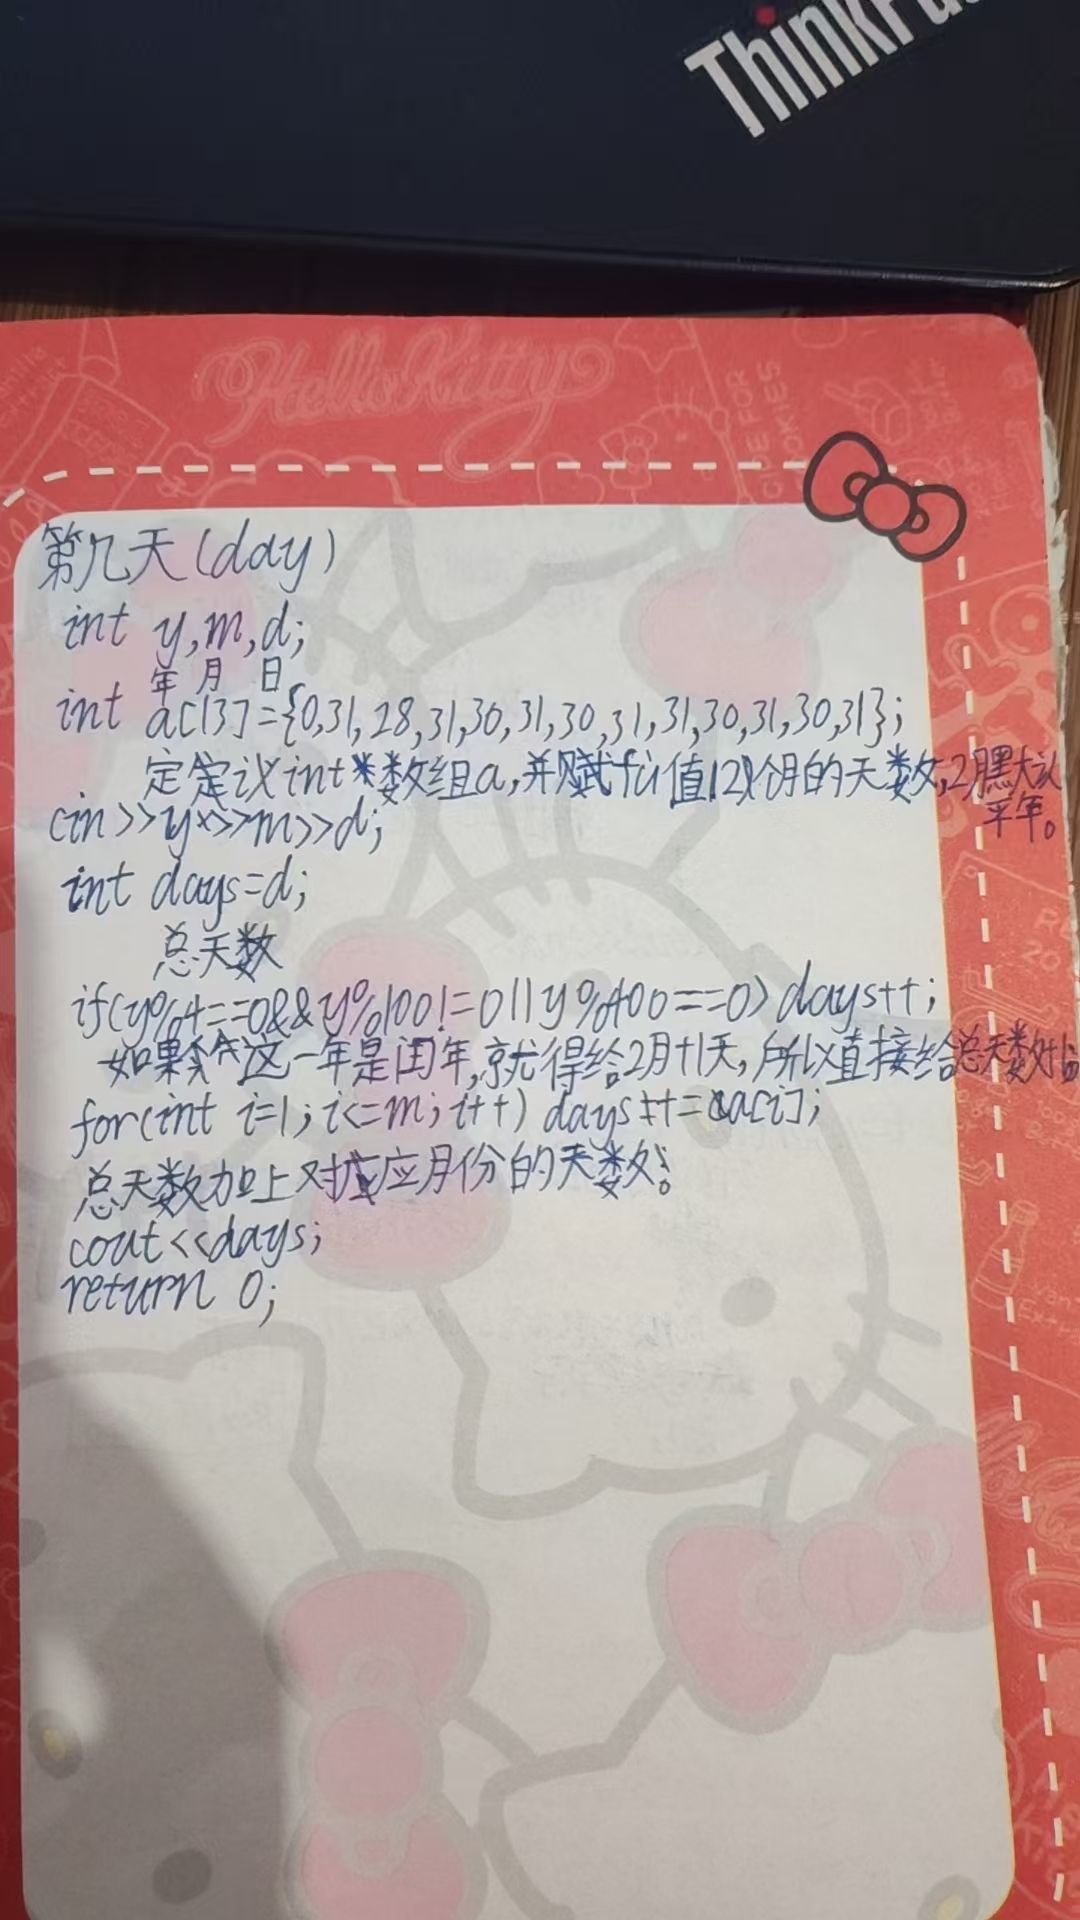 ThinkPad
Hello Kitty
第几天(day)
int y,m,d;
年 月 日
int a[13]={0,31,28,31,30,31,30,31,31,30,31,30,31};
定义int数组a,并赋fù值12个月的天数,2月默认
平年。
cin>>y>>m>>d;
int days=d;
总天数
if(y%4==0&&y%100!=0||y%400==0) days++;
如果这一年是闰年,就得给2月+1天,所以直接给总天数+1。
for(int i=1;i<=m;i++) days+=a[i];
总天数加上对应月份的天数。
cout<<days;
return 0;